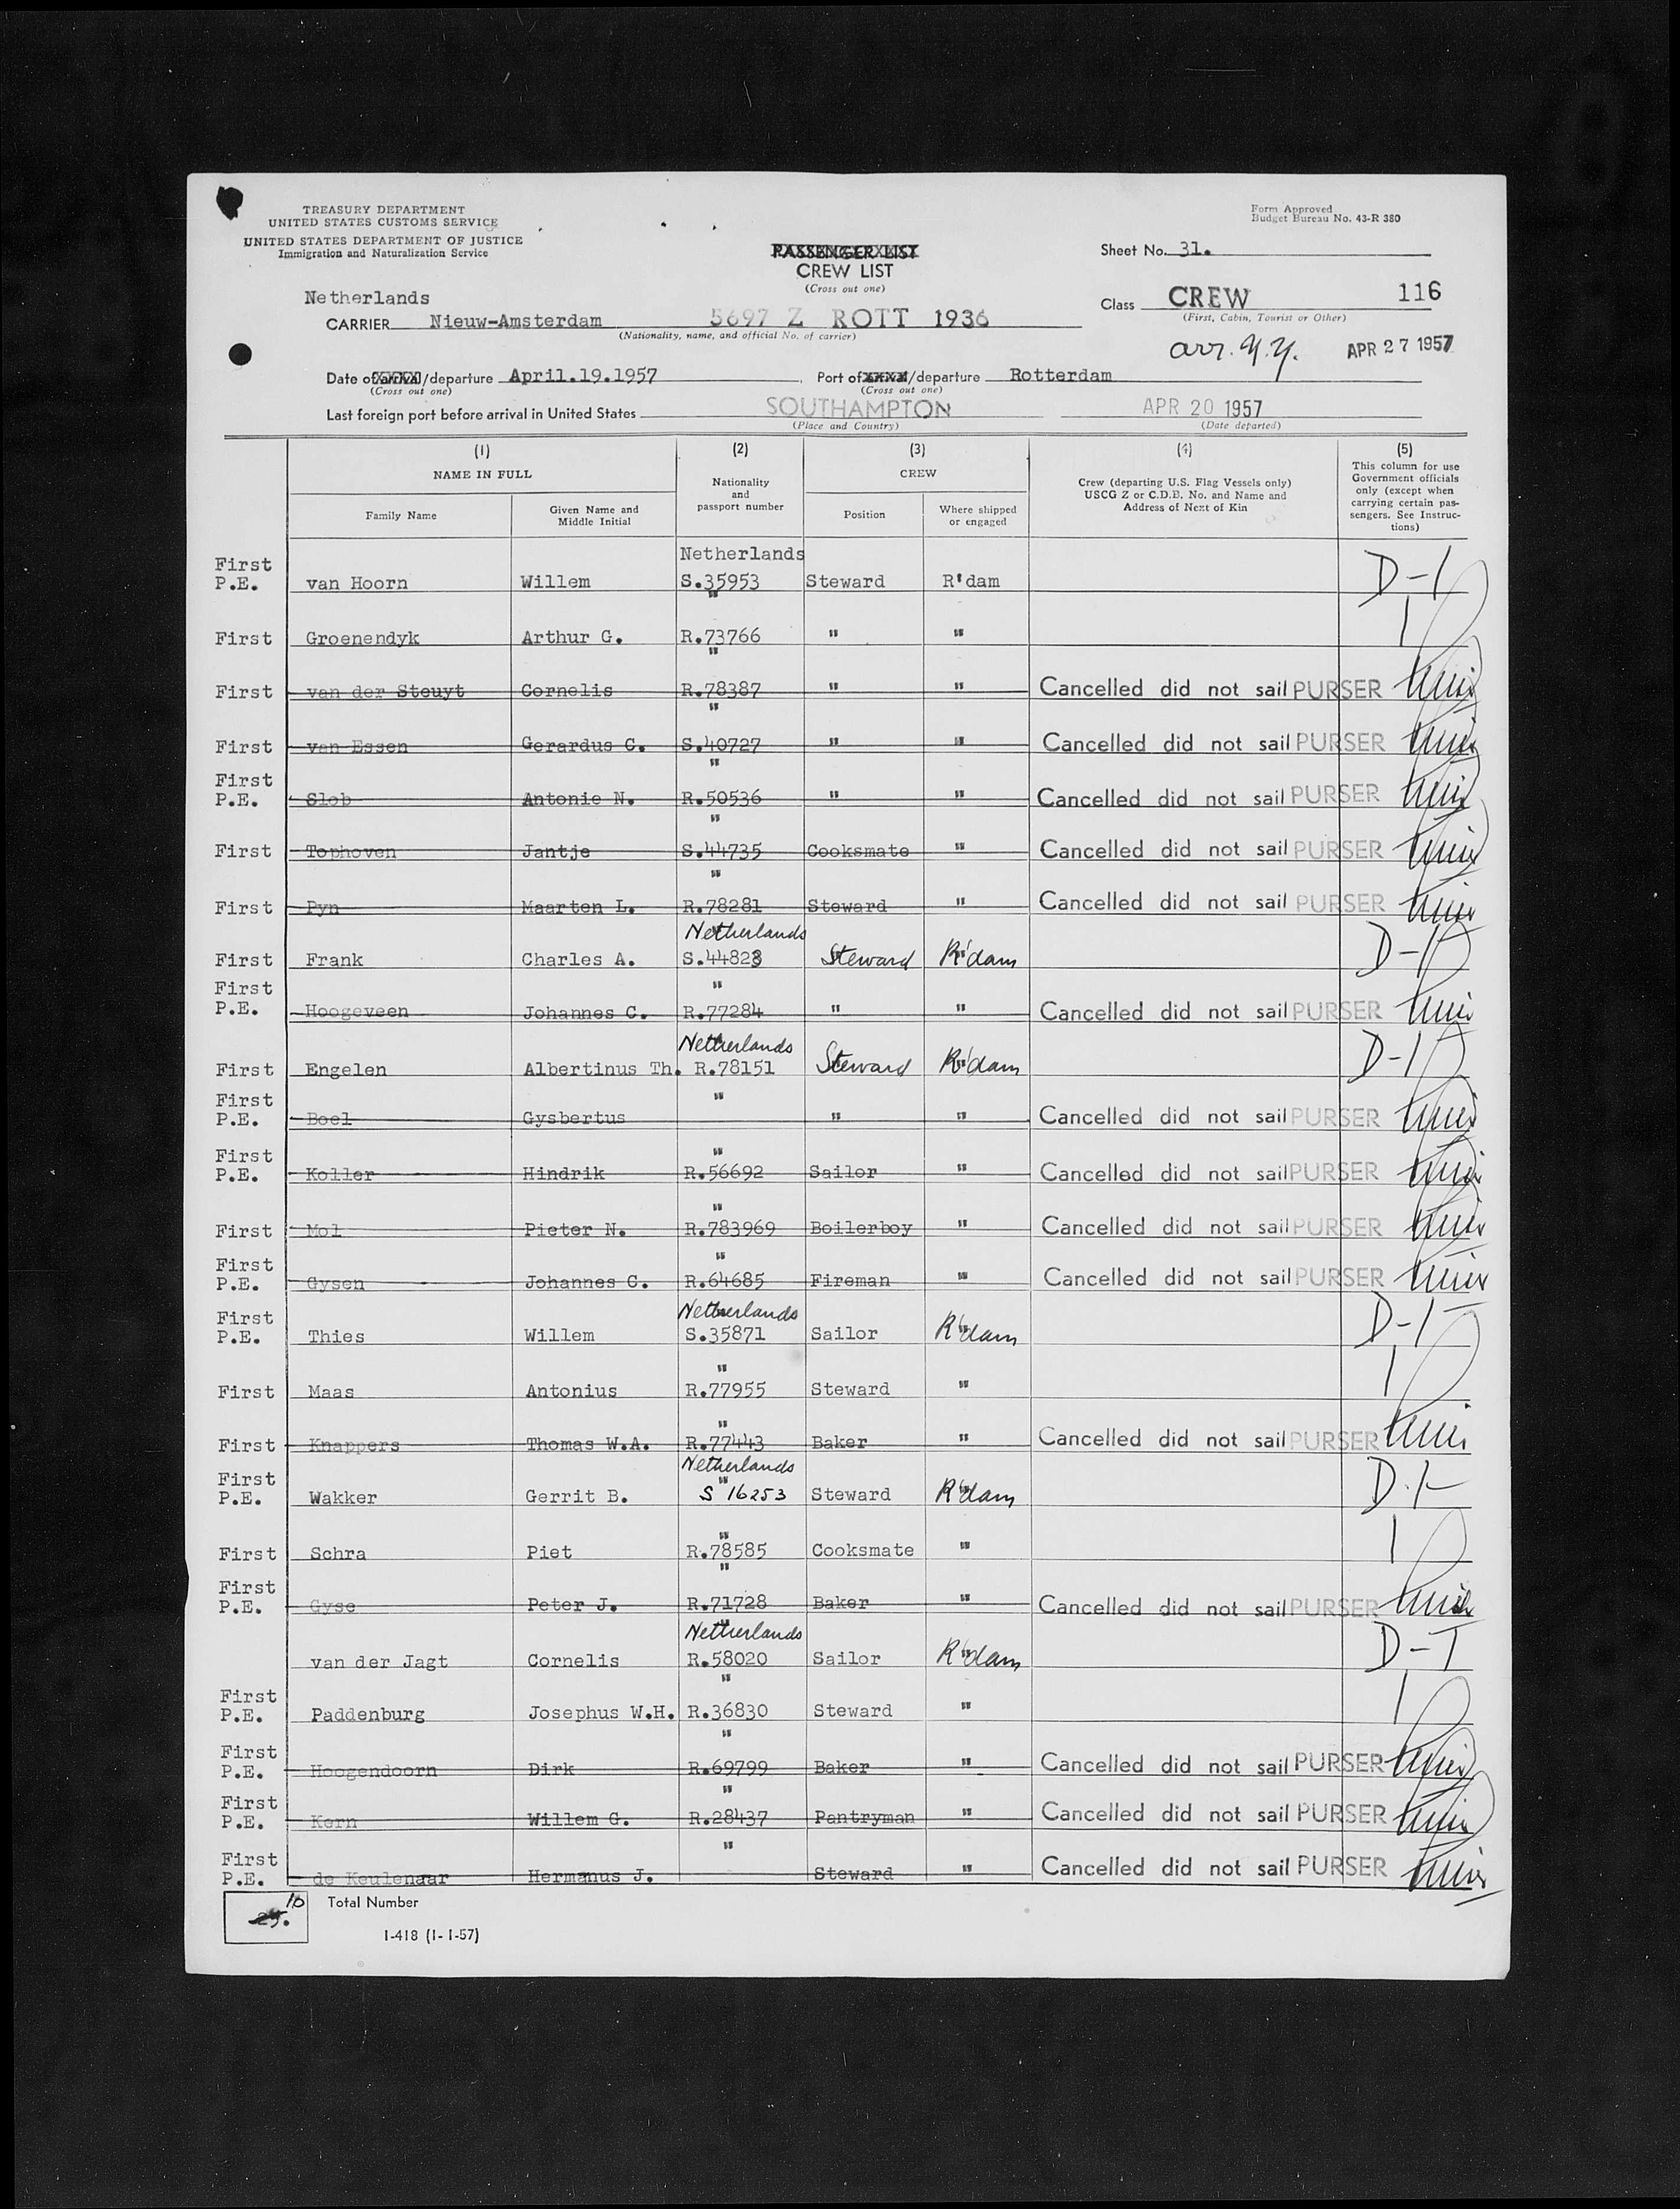 TREASURY DEPARTMENT
UNITED STATES CUSTOMS SERVICE
UNITED STATES DEPARTMENT OF JUSTICE
Immigration and Naturalization Service
Form Approved
Budget Bureau No. 43-R 380
PASSENGER LIST
CREW LIST
(Cross out one)
Sheet No. 31.
Netherlands
CARRIER Nieuw-Amsterdam 5697 Z ROTT 1936
(Nationality, name, and official No. of carrier)
Class CREW 116
(First, Cabin, Tourist or Other)
arr. N.Y. APR 27 1957
Date of arrival/departure April.19.1957 Port of arrival/departure Rotterdam
(Cross out one) (Cross out one)
Last foreign port before arrival in United States SOUTHAMPTON APR 20 1957
(Place and Country) (Date departed)
(1) (2) (3) (4) (5)
NAME IN FULL
Family Name
Given Name and Middle Initial
Nationality and passport number
CREW
Position
Where shipped or engaged
Crew (departing U.S. Flag Vessels only)
USCG Z or C.D.B. No. and Name and
Address of Next of Kin
This column for use
Government officials
only (except when
carrying certain pas-
sengers. See Instruc-
tions)
First P.E. van Hoorn Willem Netherlands S.35953 Steward R'dam D-1
First Groenendyk Arthur G. " R.73766 " " 1
First van der Steuyt Cornelis " R.78387 " " Cancelled did not sail PURSER
First van Essen Gerardus C. " S.40727 " " Cancelled did not sail PURSER
First P.E. Slob Antonie N. " R.50536 " " Cancelled did not sail PURSER
First Tophoven Jantje " S.44735 Cooksmate " Cancelled did not sail PURSER
First Pyn Maarten L. " R.78281 Steward " Cancelled did not sail PURSER
First Frank Charles A. Netherlands S.44823 Steward R'dam D-1
First P.E. Hoogeveen Johannes C. " R.77284 " " Cancelled did not sail PURSER
First Engelen Albertinus Th. Netherlands R.78151 Steward R'dam D-1
First P.E. Boel Gysbertus " " " Cancelled did not sail PURSER
First P.E. Koller Hindrik " R.56692 Sailor " Cancelled did not sail PURSER
First Mol Pieter N. " R.783969 Boilerboy " Cancelled did not sail PURSER
First P.E. Gysen Johannes C. " R.64685 Fireman " Cancelled did not sail PURSER
First P.E. Thies Willem Netherlands S.35871 Sailor R'dam D-1
First Maas Antonius " R.77955 Steward " 1
First Knappers Thomas W.A. " R.77443 Baker " Cancelled did not sail PURSER
First P.E. Wakker Gerrit B. Netherlands " S 16253 Steward R'dam D-1
First Schra Piet " R.78585 Cooksmate " 1
First P.E. Gyse Peter J. " R.71728 Baker " Cancelled did not sail PURSER
van der Jagt Cornelis Netherlands R.58020 Sailor R'dam D-1
First P.E. Paddenburg Josephus W.H. " R.36830 Steward " 1
First P.E. Hoogendoorn Dirk " R.69799 Baker " Cancelled did not sail PURSER
First P.E. Kern Willem G. " R.28437 Pantryman " Cancelled did not sail PURSER
First P.E. de Keulenaar Hermanus J. " Steward " Cancelled did not sail PURSER
10
25. Total Number
I-418 (1-1-57)